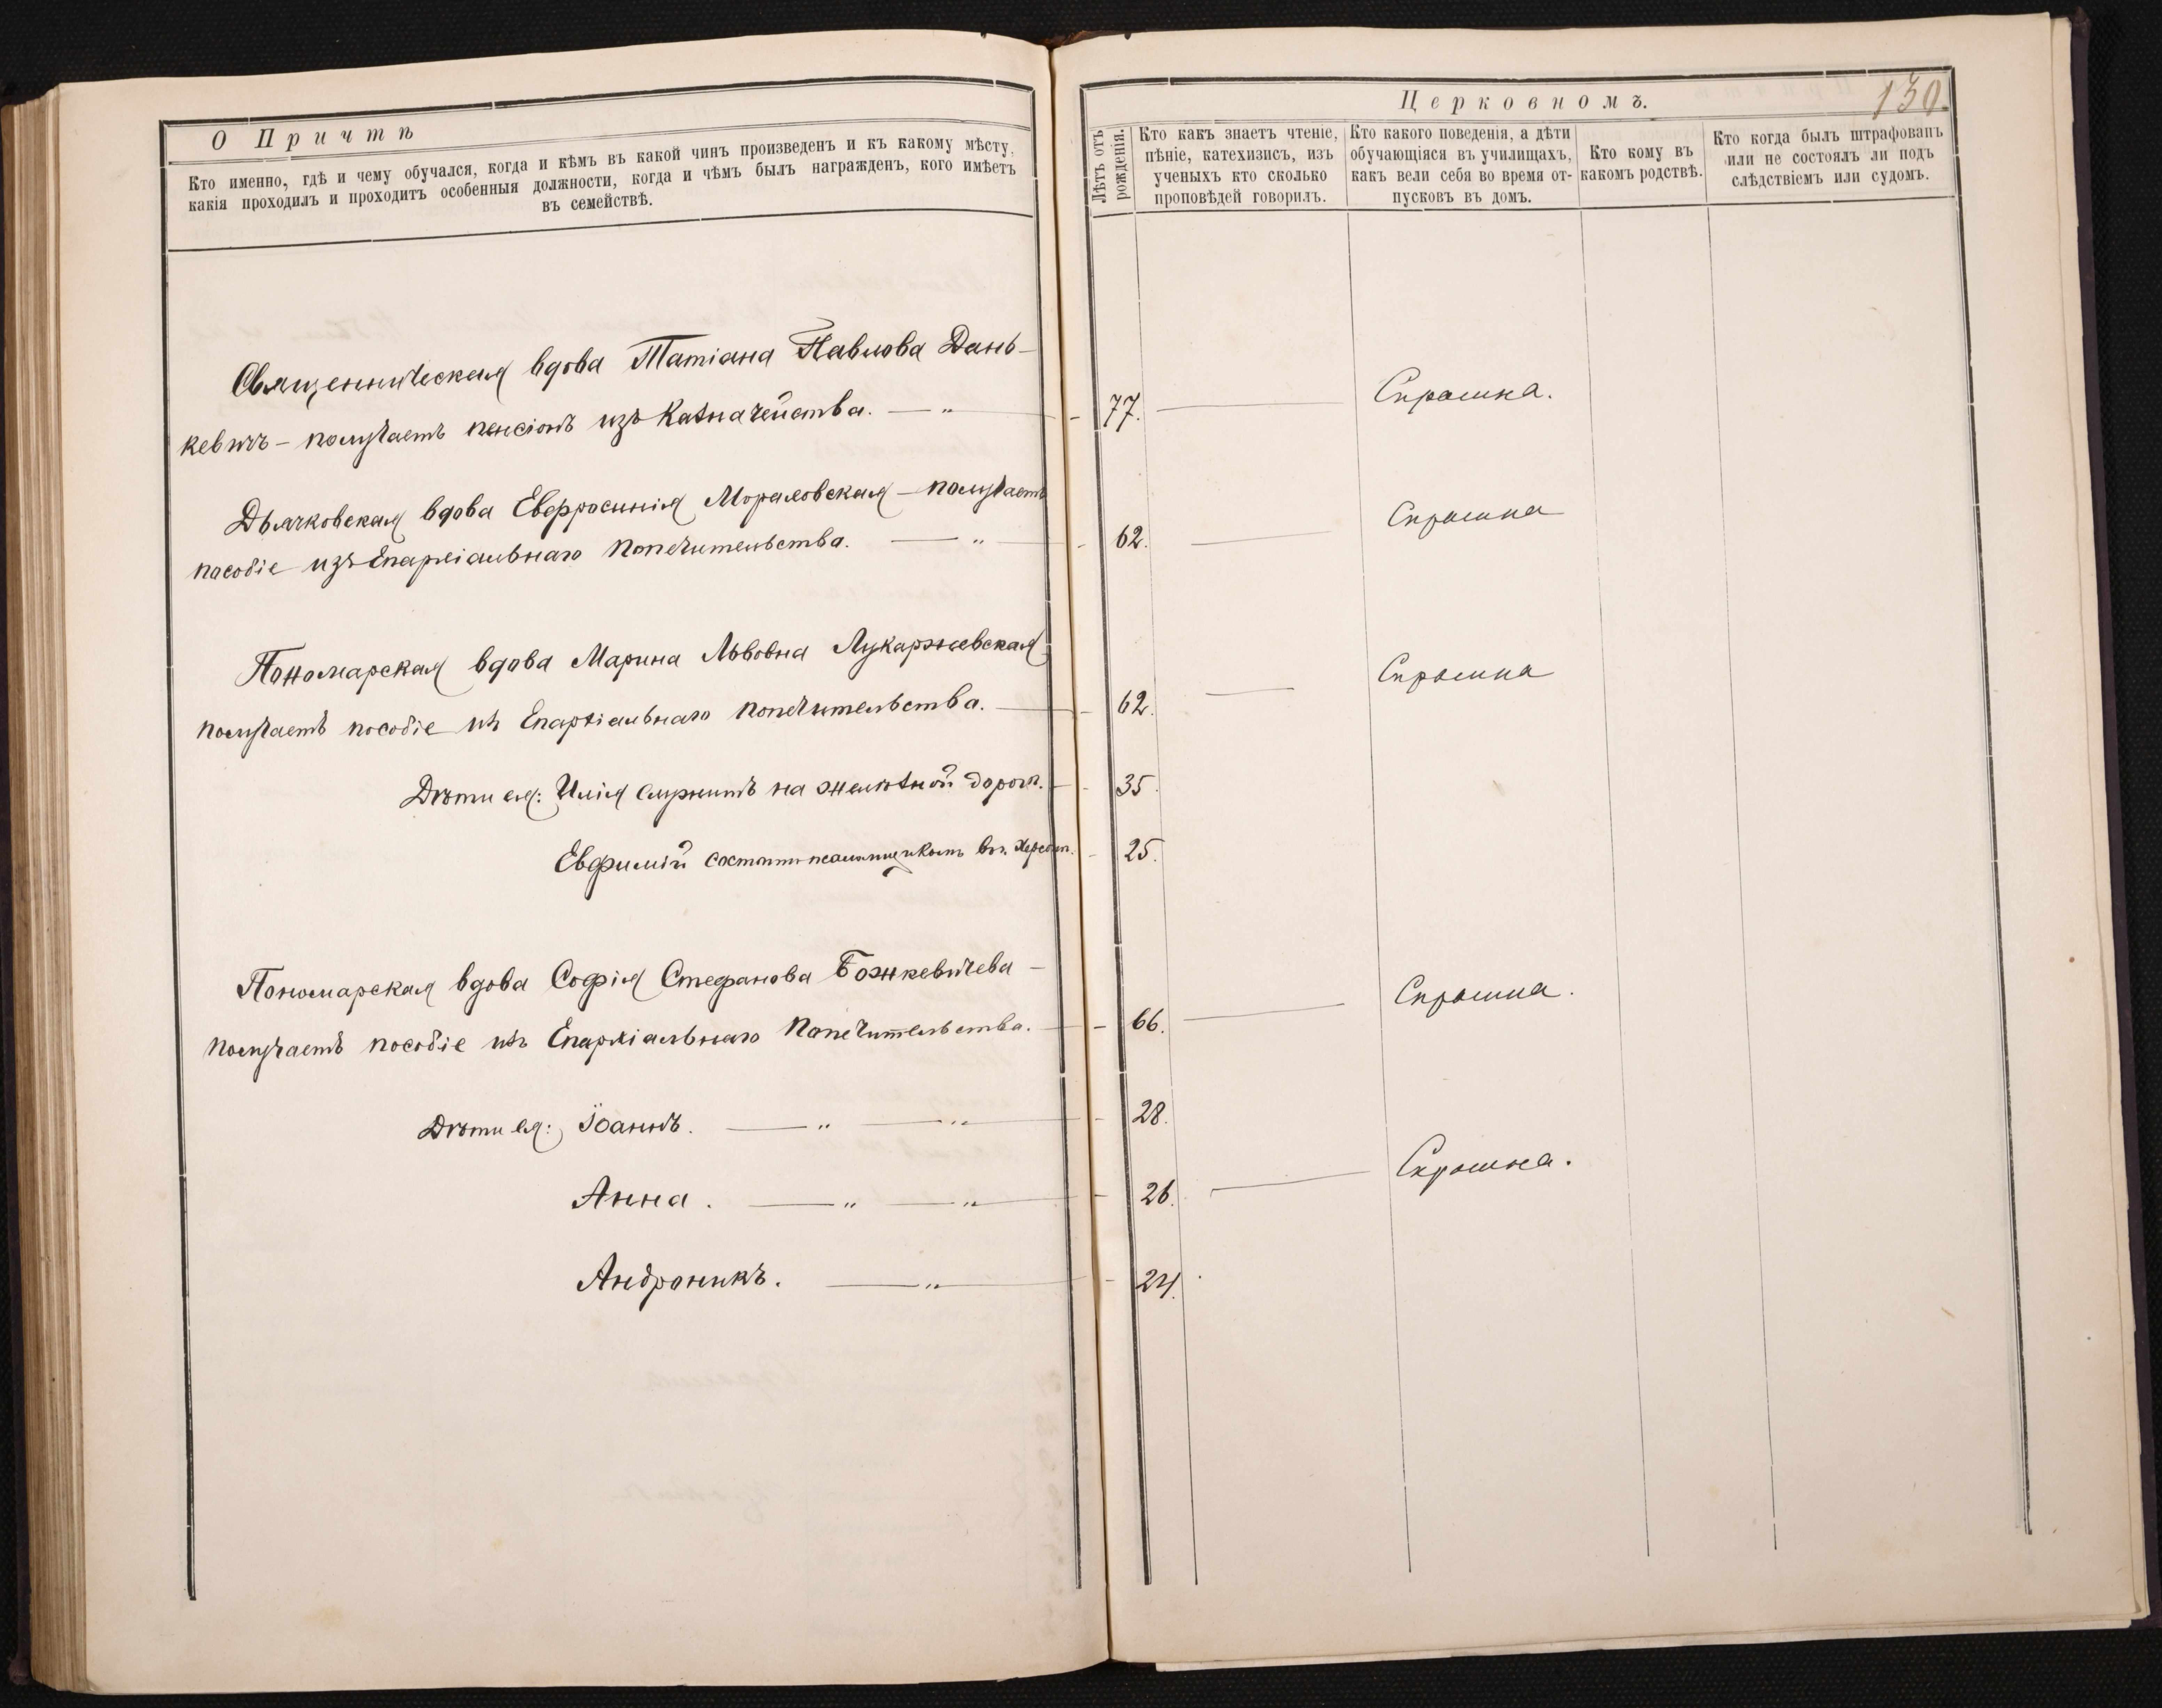 О Причтѣ
Кто именно, гдѣ и чему обучался, когда и кѣмъ въ какой чинъ произведенъ и къ какому мѣсту,
какія проходилъ и проходитъ особенныя должности, когда и чѣмъ былъ награжденъ, кого имѣетъ
въ семействѣ.
Священническая вдова Татіана Павлова Дань-
кевичъ – получаетъ пенсіонъ изъ Казначейства. — „
Дьячковская вдова Евфросинія Мораловская – получаетъ
пособіе изъ Епархіальнаго Попечительства. — „
Пономарская вдова Марина Львовна Лукаржевская
получаетъ пособіе изъ Епархіальнаго Попечительства. —
Дѣти ея: Илія служитъ на желѣзной дорогѣ. —
Евфимій состоитъ псаломщикомъ въ г.
Пономарская вдова Софія Стефанова Божкевичева –
получаетъ пособіе изъ Епархіальнаго Попечительства. —
Дѣти ея: Іоаннъ. — „ — „
Анна. — „ — „
Андроникъ. — „
Церковномъ.
130.
Лѣтъ отъ
рожденія.
Кто какъ знаетъ чтеніе,
пѣніе, катехизисъ, изъ
ученыхъ кто сколько
проповѣдей говорилъ.
Кто какого поведенія, а дѣти
обучающіяся въ училищахъ,
какъ вели себя во время от-
пусковъ въ домъ.
Кто кому въ
какомъ родствѣ.
Кто когда былъ штрафованъ
или не состоялъ ли подъ
слѣдствіемъ или судомъ.
77. — Скромна.
62. — Скромна
62. — Скромна
35.
25.
66. — Скромна.
28.
26. — Скромна.
24.